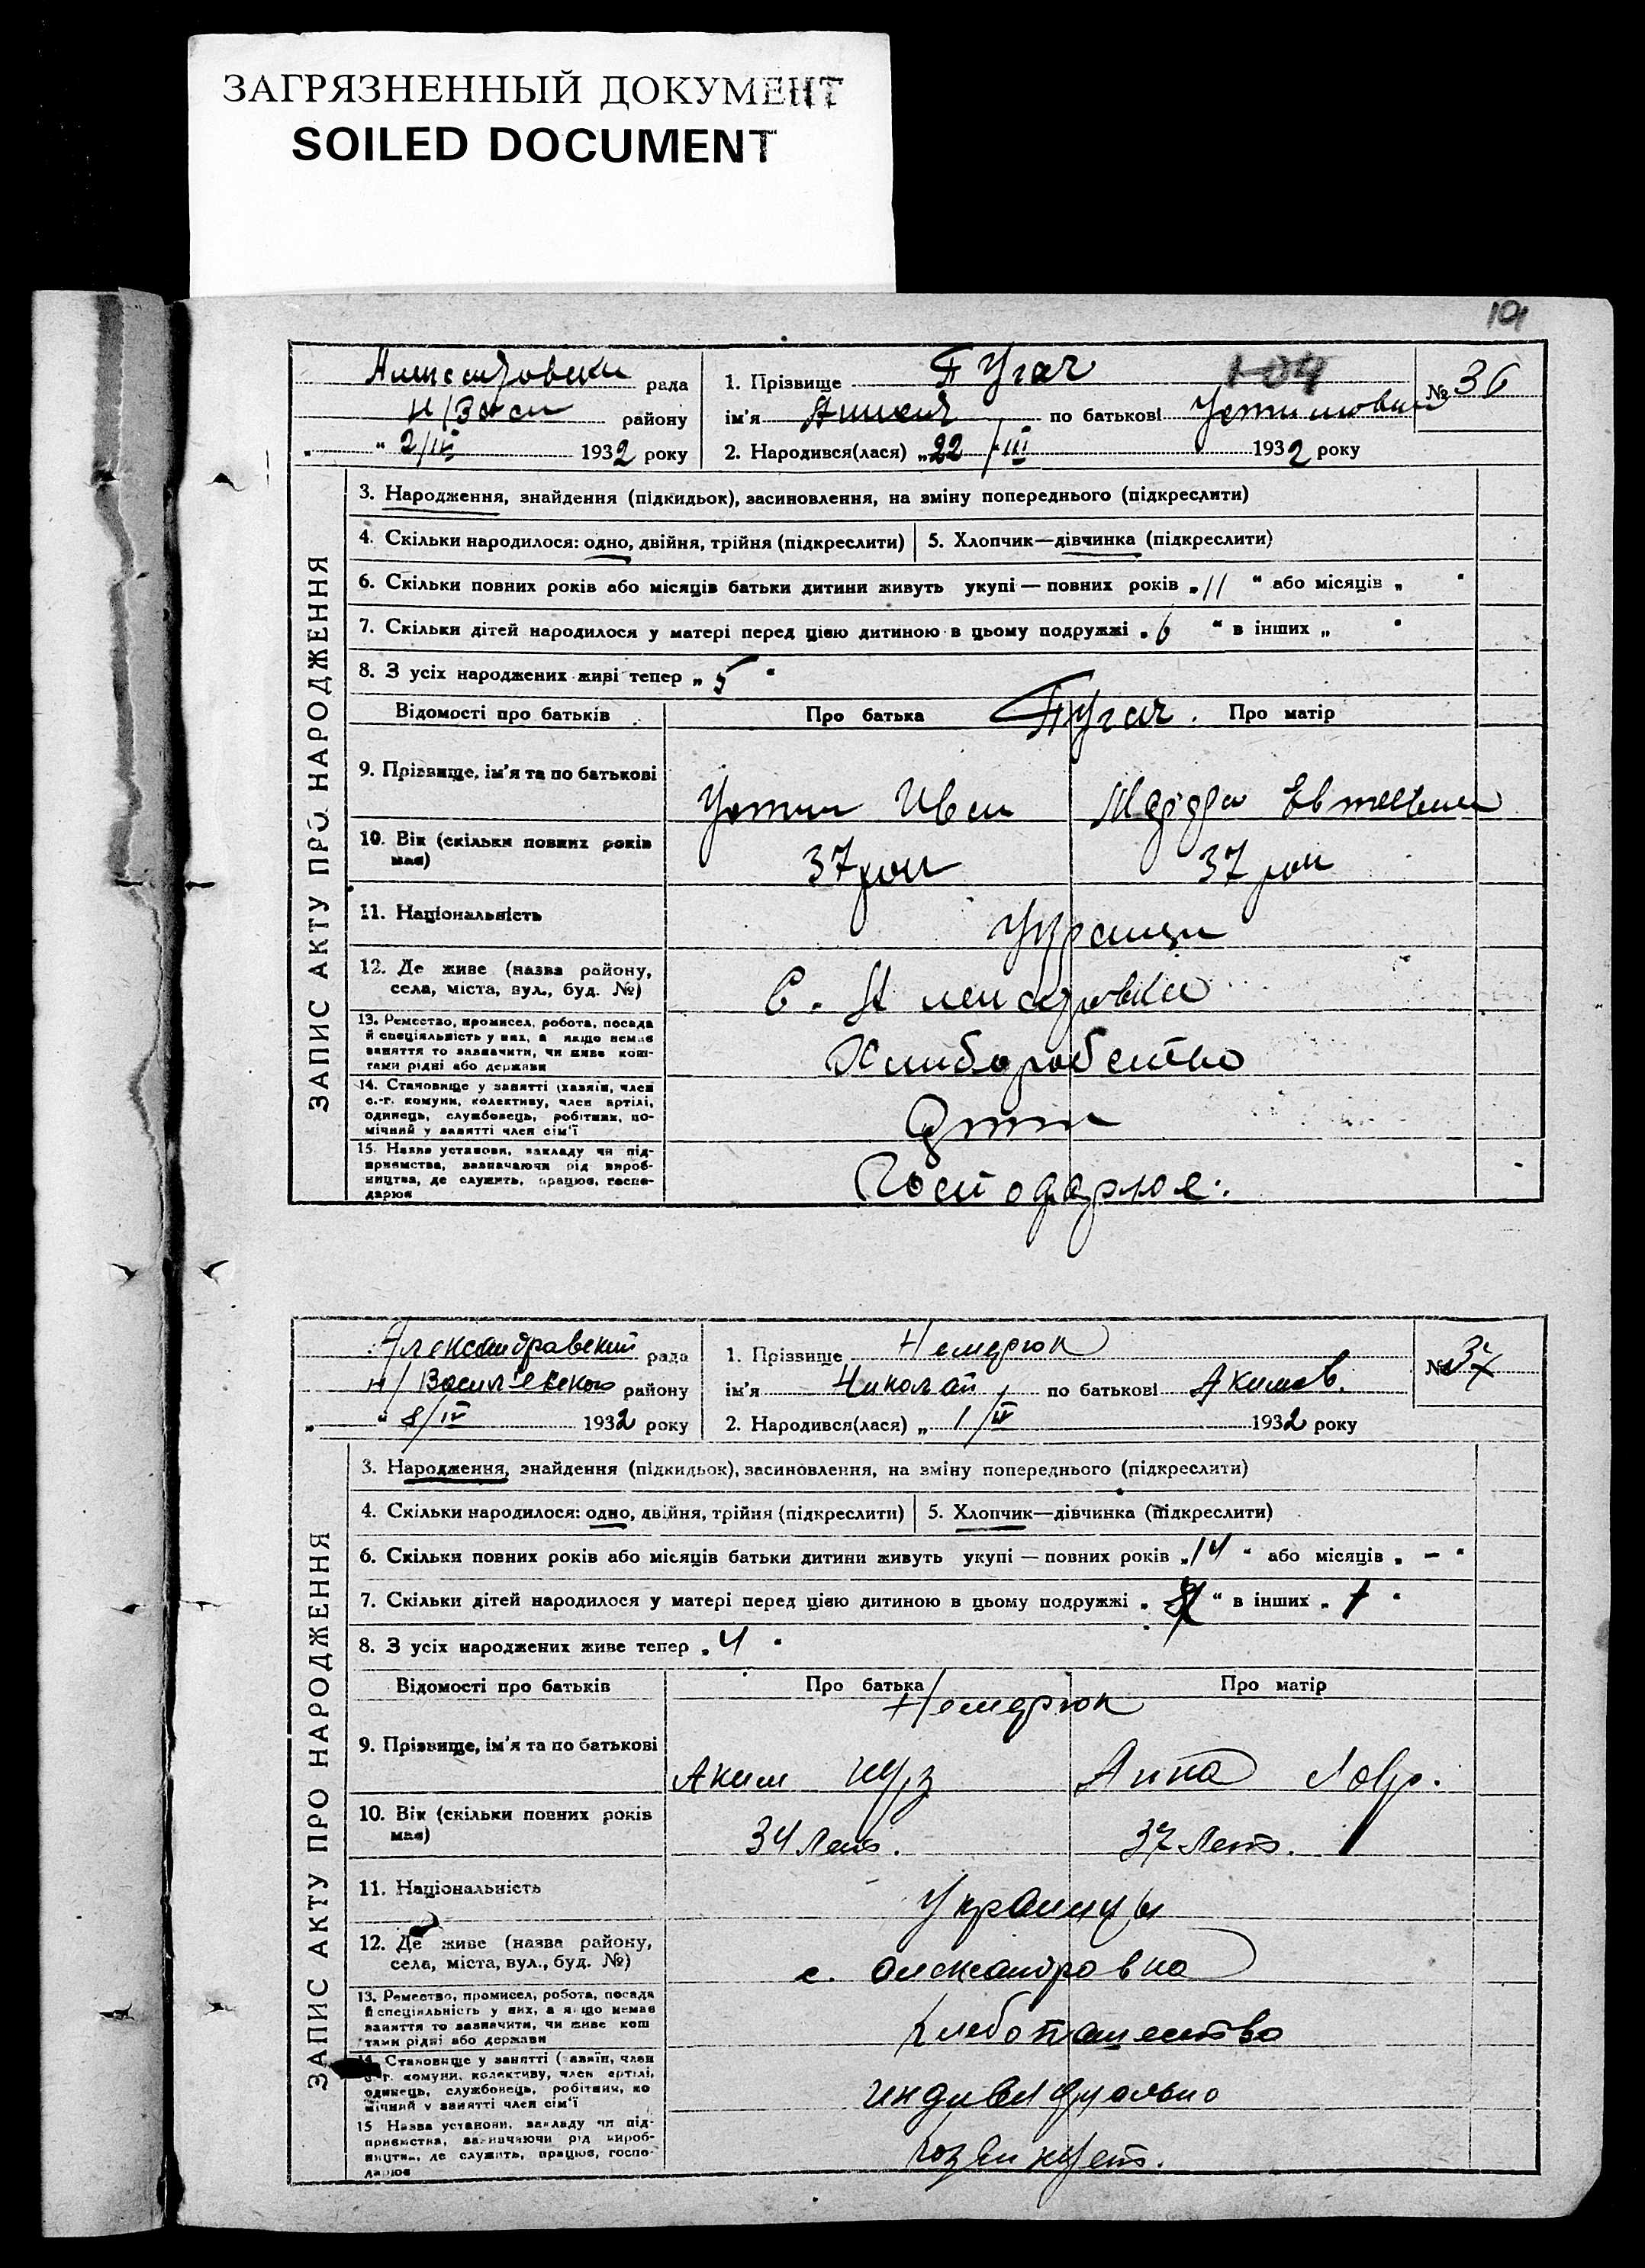 ЗАГРЯЗНЕННЫЙ ДОКУМЕНТ
SOILED DOCUMENT
101
ЗАПИС АКТУ ПРО НАРОДЖЕННЯ
рада
району
„ “ 2/IV 1932 року
1. Прізвище Пугач
104
ім'я по батькові
2. Народився(лася) „22 /III 1932 року
№ 36
3. Народження, знайдення (підкидьок), засиновлення, на зміну попереднього (підкреслити)
4. Скільки народилося: одно, двійня, трійня (підкреслити) 5. Хлопчик—дівчинка (підкреслити)
6. Скільки повних років або місяців батьки дитини живуть укупі — повних років „11 “ або місяців „ “
7. Скільки дітей народилося у матері перед цією дитиною в цьому подружжі „6 “ в інших „ “
8. З усіх народжених живі тепер „5 “
Відомості про батьків Про батька Про матір
Пугач
9. Прізвище, ім'я та по батькові Устин Иван
10. Вік (скільки повних років має) 37 рок 37 рок
11. Національність
12. Де живе (назва району, села, міста, вул., буд. №) С.
13. Ремество, промисел, робота, посада й спеціяльність у них, а якщо немає заняття то зазначити, чи живе коштами рідні або держави Хлиборобство
14. Становище у занятті (хазяїн, член с.-г. комуни, колективу, член артілі, одинець, службовець, робітник, помічний у занятті член сім'ї
15. Назва установи, закладу чи підприємства, зазначаючи рід виробництва, де служить, працює, господарює Господарює.
ЗАПИС АКТУ ПРО НАРОДЖЕННЯ
Александравский рада
Н/Васильевского району
„ “ 8/IV 1932 року
1. Прізвище Немерюк
ім'я Николай по батькові Акимов.
2. Народився(лася) „ 1/IV 1932 року
№ 37
3. Народження, знайдення (підкидьок), засиновлення, на зміну попереднього (підкреслити)
4. Скільки народилося: одно, двійня, трійня (підкреслити) 5. Хлопчик—дівчинка (підкреслити)
6. Скільки повних років або місяців батьки дитини живуть укупі — повних років „14 “ або місяців „ – “
7. Скільки дітей народилося у матері перед цією дитиною в цьому подружжі „ “ в інших „ “
8. З усіх народжених живе тепер „4 “
Відомості про батьків Про батька Про матір
Немерюк
9. Прізвище, ім'я та по батькові Аким Анна Лавр.
10. Вік (скільки повних років має) 34 Лет. 37 Лет.
11. Національність Украинцы
12. Де живе (назва району, села, міста, вул., буд. №) с. Олександровка
13. Ремество, промисел, робота, посада й спеціяльність у них, а якщо немає заняття то зазначити, чи живе коштами рідні або держави Хлебопашество
14. Становище у занятті (хазяїн, член с.-г. комуни, колективу, член артілі, одинець, службовець, робітник, помічний у занятті член сім'ї индивидуально
15 Назва установи, закладу чи підприємства, зазначаючи рід виробництва, де служить, працює, господарює